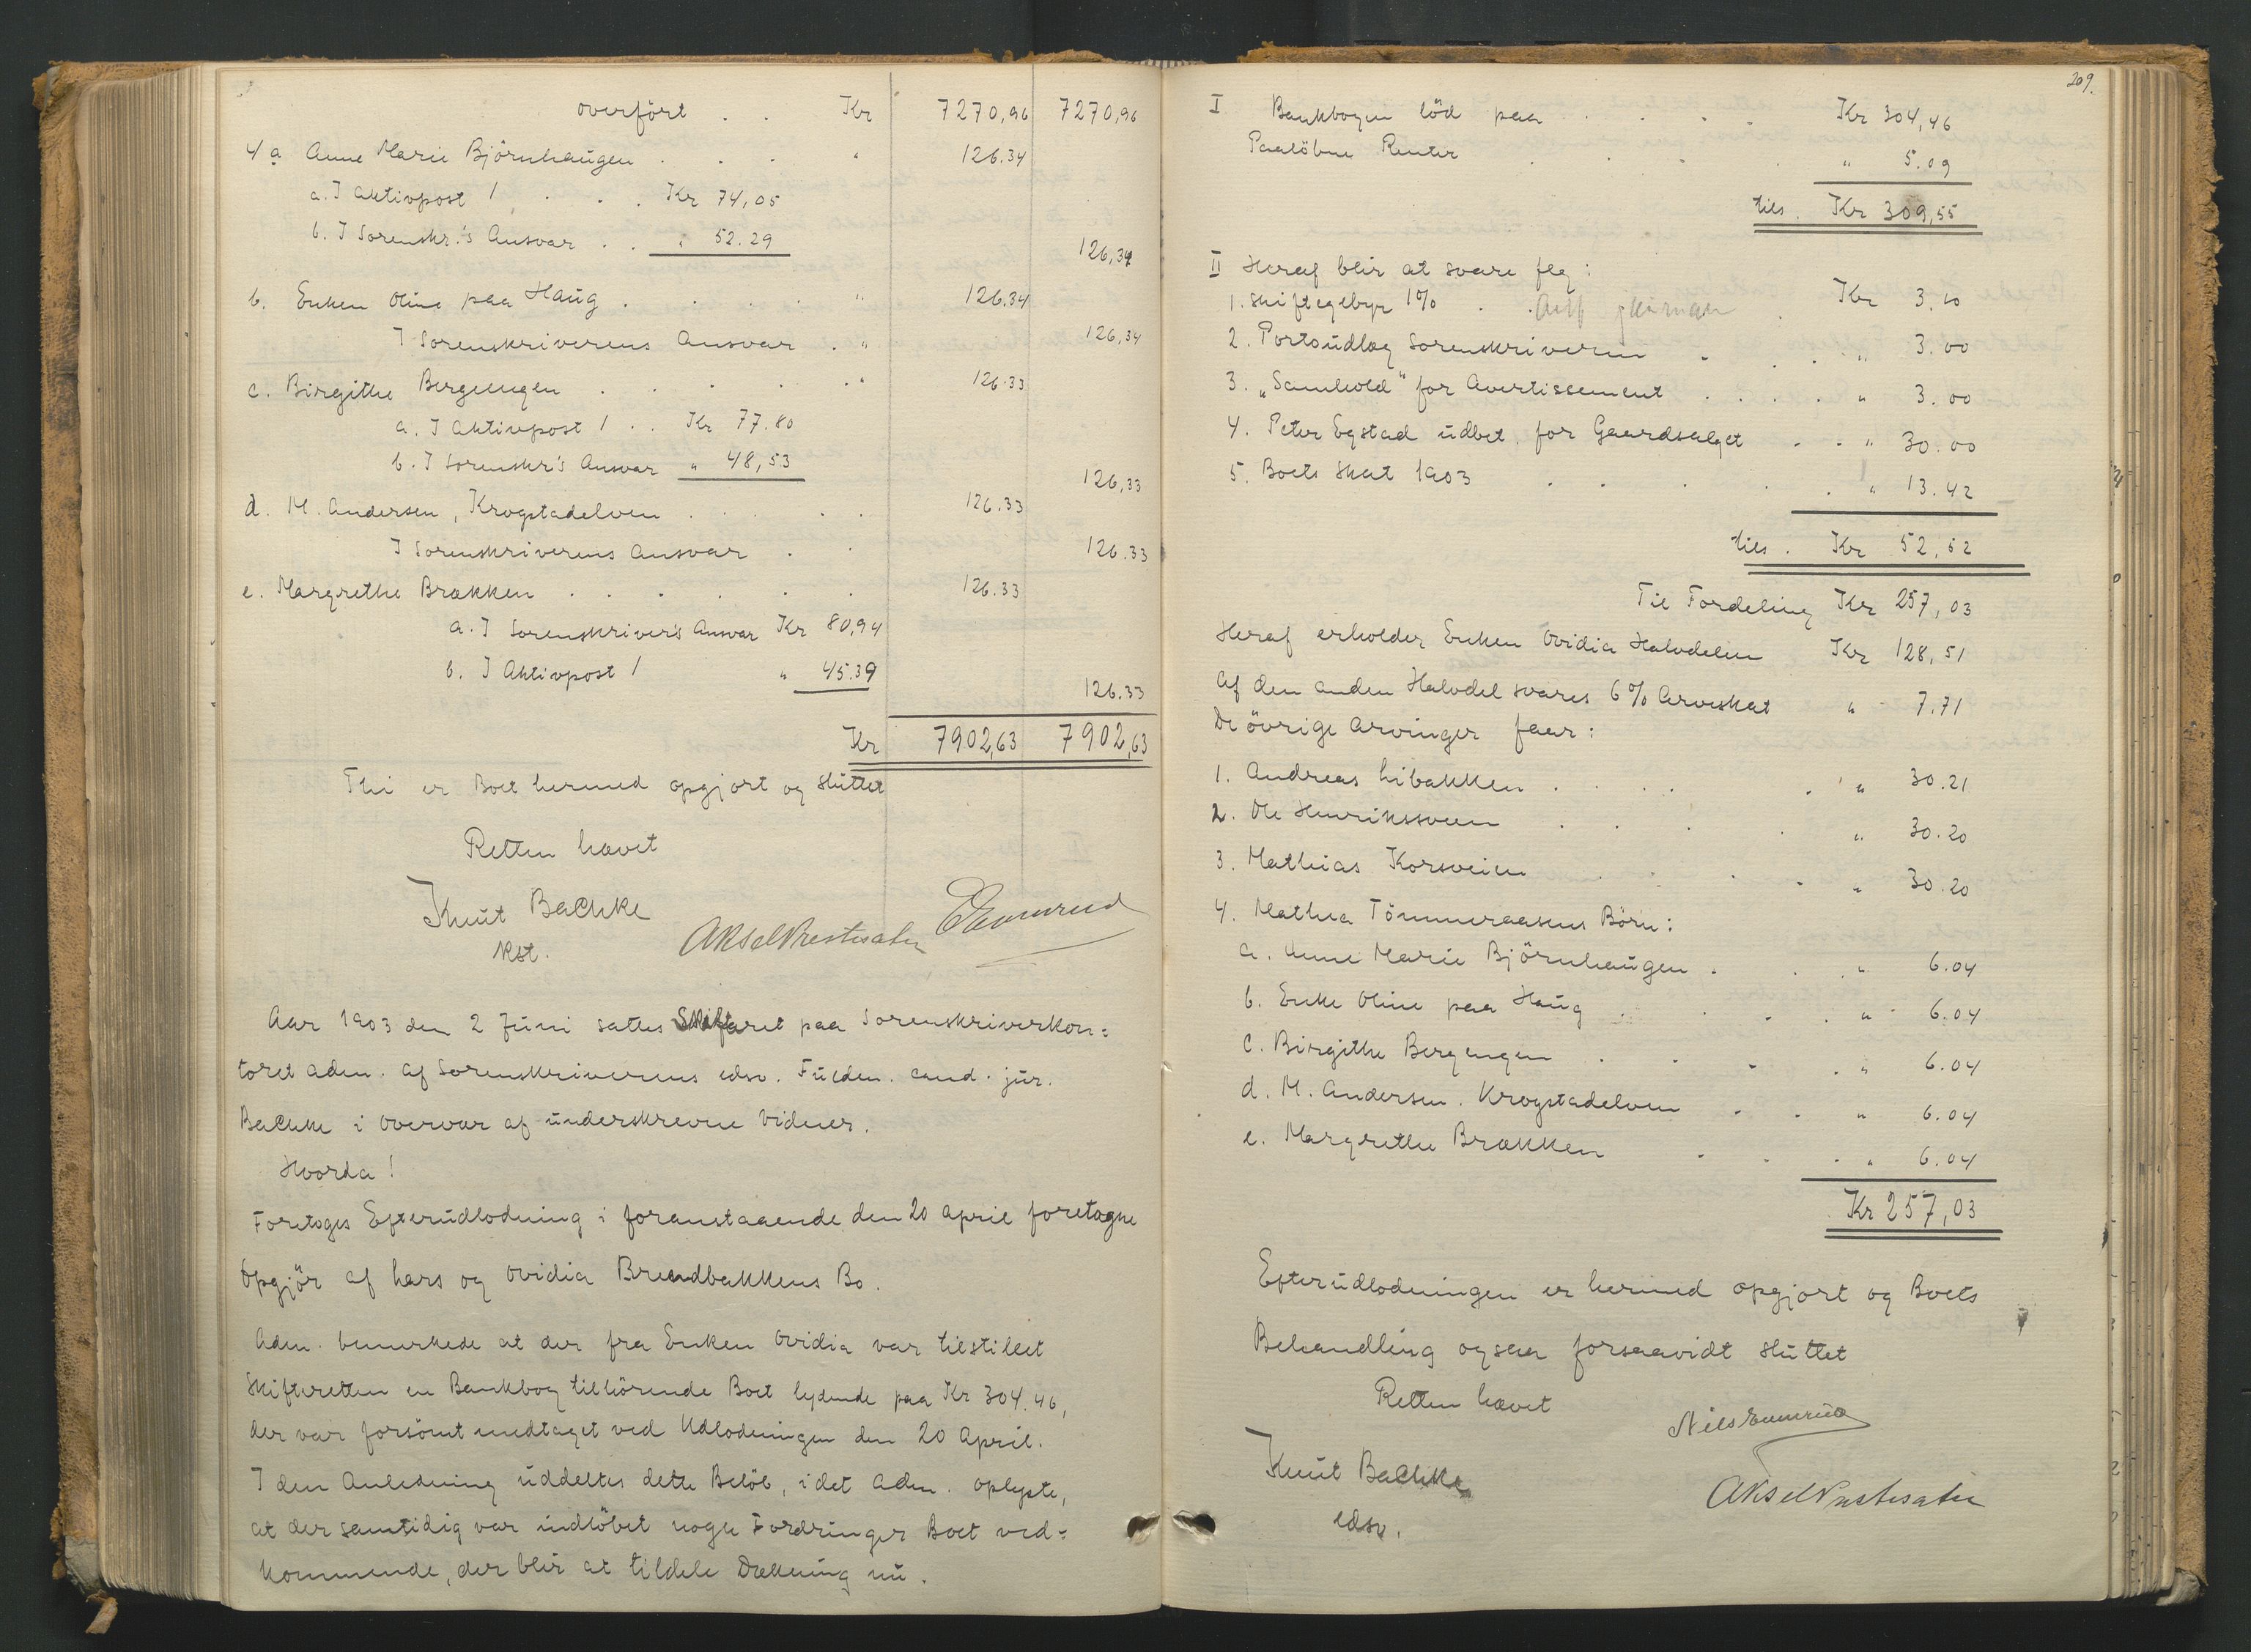 overført . . Kr 7270,96 7270,96
4 a Anne Marie Björnhaugen . . . " 126.34
a. I Aktivpost 1 . . . Kr 74,05
b. I Sorenskr.'s Ansvar . . " 52.29 126,34
b. Enken Oline paa Haug . . . . " 126.34
I Sorenskriverens Ansvar . " 126,34
c. Birgithe Bergengen . . . . . " 126.33
a. I Aktivpost 1 . . Kr 77.80
b. I Sorenskr's Ansvar " 48,53 126,33
d. M. Andersen, Krogstadelven . . . . . 126.33
I Sorenskriverens Ansvar . . 126.33
e. Margrethe Brækken . . . . . . 126.33
a. I Sorenskriver's Ansvar Kr 80,94
b. I Aktivpost 1 " 45.39 126.33
Kr 7902,63 7902,63
Thi er Boet hermed opgjort og sluttet
Retten hævet
Knut Bachke
kst.
Aksel
Aar 1903 den 2 Juni sattes Skifteret paa Sorenskriverkon=
toret adm. af Sorenskriverens edsv. Fuldm. cand. jur.
Bachke i overvær af underskrevne Vidner.
Hvorda!
Foretoges Efterudlodning i foranstaaende den 20 April foretagne
Opgjör af Lars og Ovidia Brendbakkens Bo.
Adm. bemerkede at der fra Enken Ovidia var tilstillet
Skifteretten en Bankbog tilhörende Boet lydende paa Kr 304.46,
der var forsömt medtaget ved Udlodningen den 20 April.
I den Anledning uddeltes dette Belöb, idet adm. oplyste,
at der samtidig var indlöbet nogle Fordringer Boet ved=
kommende, der blir at tildele Dækning nu.
209.
I Bankbogen löd paa . . . . Kr 304,46
Paalöbne Renter . . . . " 5.09
tils. Kr 309,55
II Heraf blir at svare flg:
1. Skiftegebyr 1% . . Kr 3.10
2. Portoudlæg Sorenskriveren . . . " 3.00
3. "Samhold" for Avertissement . . . . " 3.00
4. Peter Egstad udbet. for Gaardsalget . . " 30.00
5. Boets Skat 1903 . . . . . " 13.42
tils. Kr 52,52
Til Fordeling Kr 257,03
Heraf erholder Enken Ovidia Halvdelen Kr 128,51
Af den anden Halvdel svares 6% Arveskat " 7.71
De övrige Arvinger faar:
1. Andreas Libakken . . . . . " 30.21
2. Ole Henrikssveen . . . . " 30.20
3. Mathias Korsveien . . . . " 30.20
4. Mathea Tömmeraasens Börn:
a. Anne Marie Björnhaugen . . . " 6.04
b. Enke Oline paa Haug . . . . " 6.04
c. Birgithe Bergengen . . . . " 6.04
d. M. Andersen. Krogstadelven . . " 6.04
e. Margrethe Brækken . . . " 6.04
Kr 257,03
Efterudlodningen er hermed opgjort og Boets
Behandling ogsaa forsaavidt sluttet
Retten hævet
Nils
Knut Bachke
edsv.
Aksel